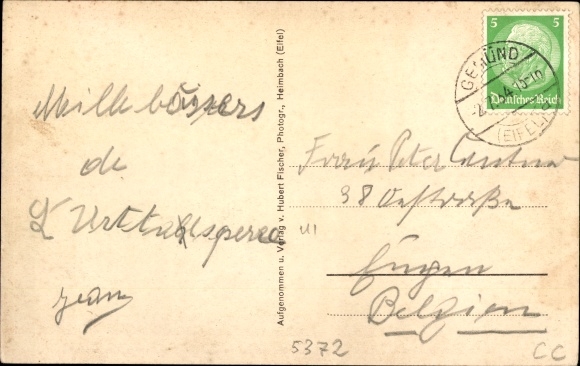 Mille baisers
de
L'Urttalsperre
Jean
Aufgenommen u. Verlag v. Hubert Fischer, Photogr., Heimbach (Eifel)
5 5
Deutsches Reich
GEMÜND
(EIFEL)
Frau Peter
98
Eupen
Belgien
5372
CC